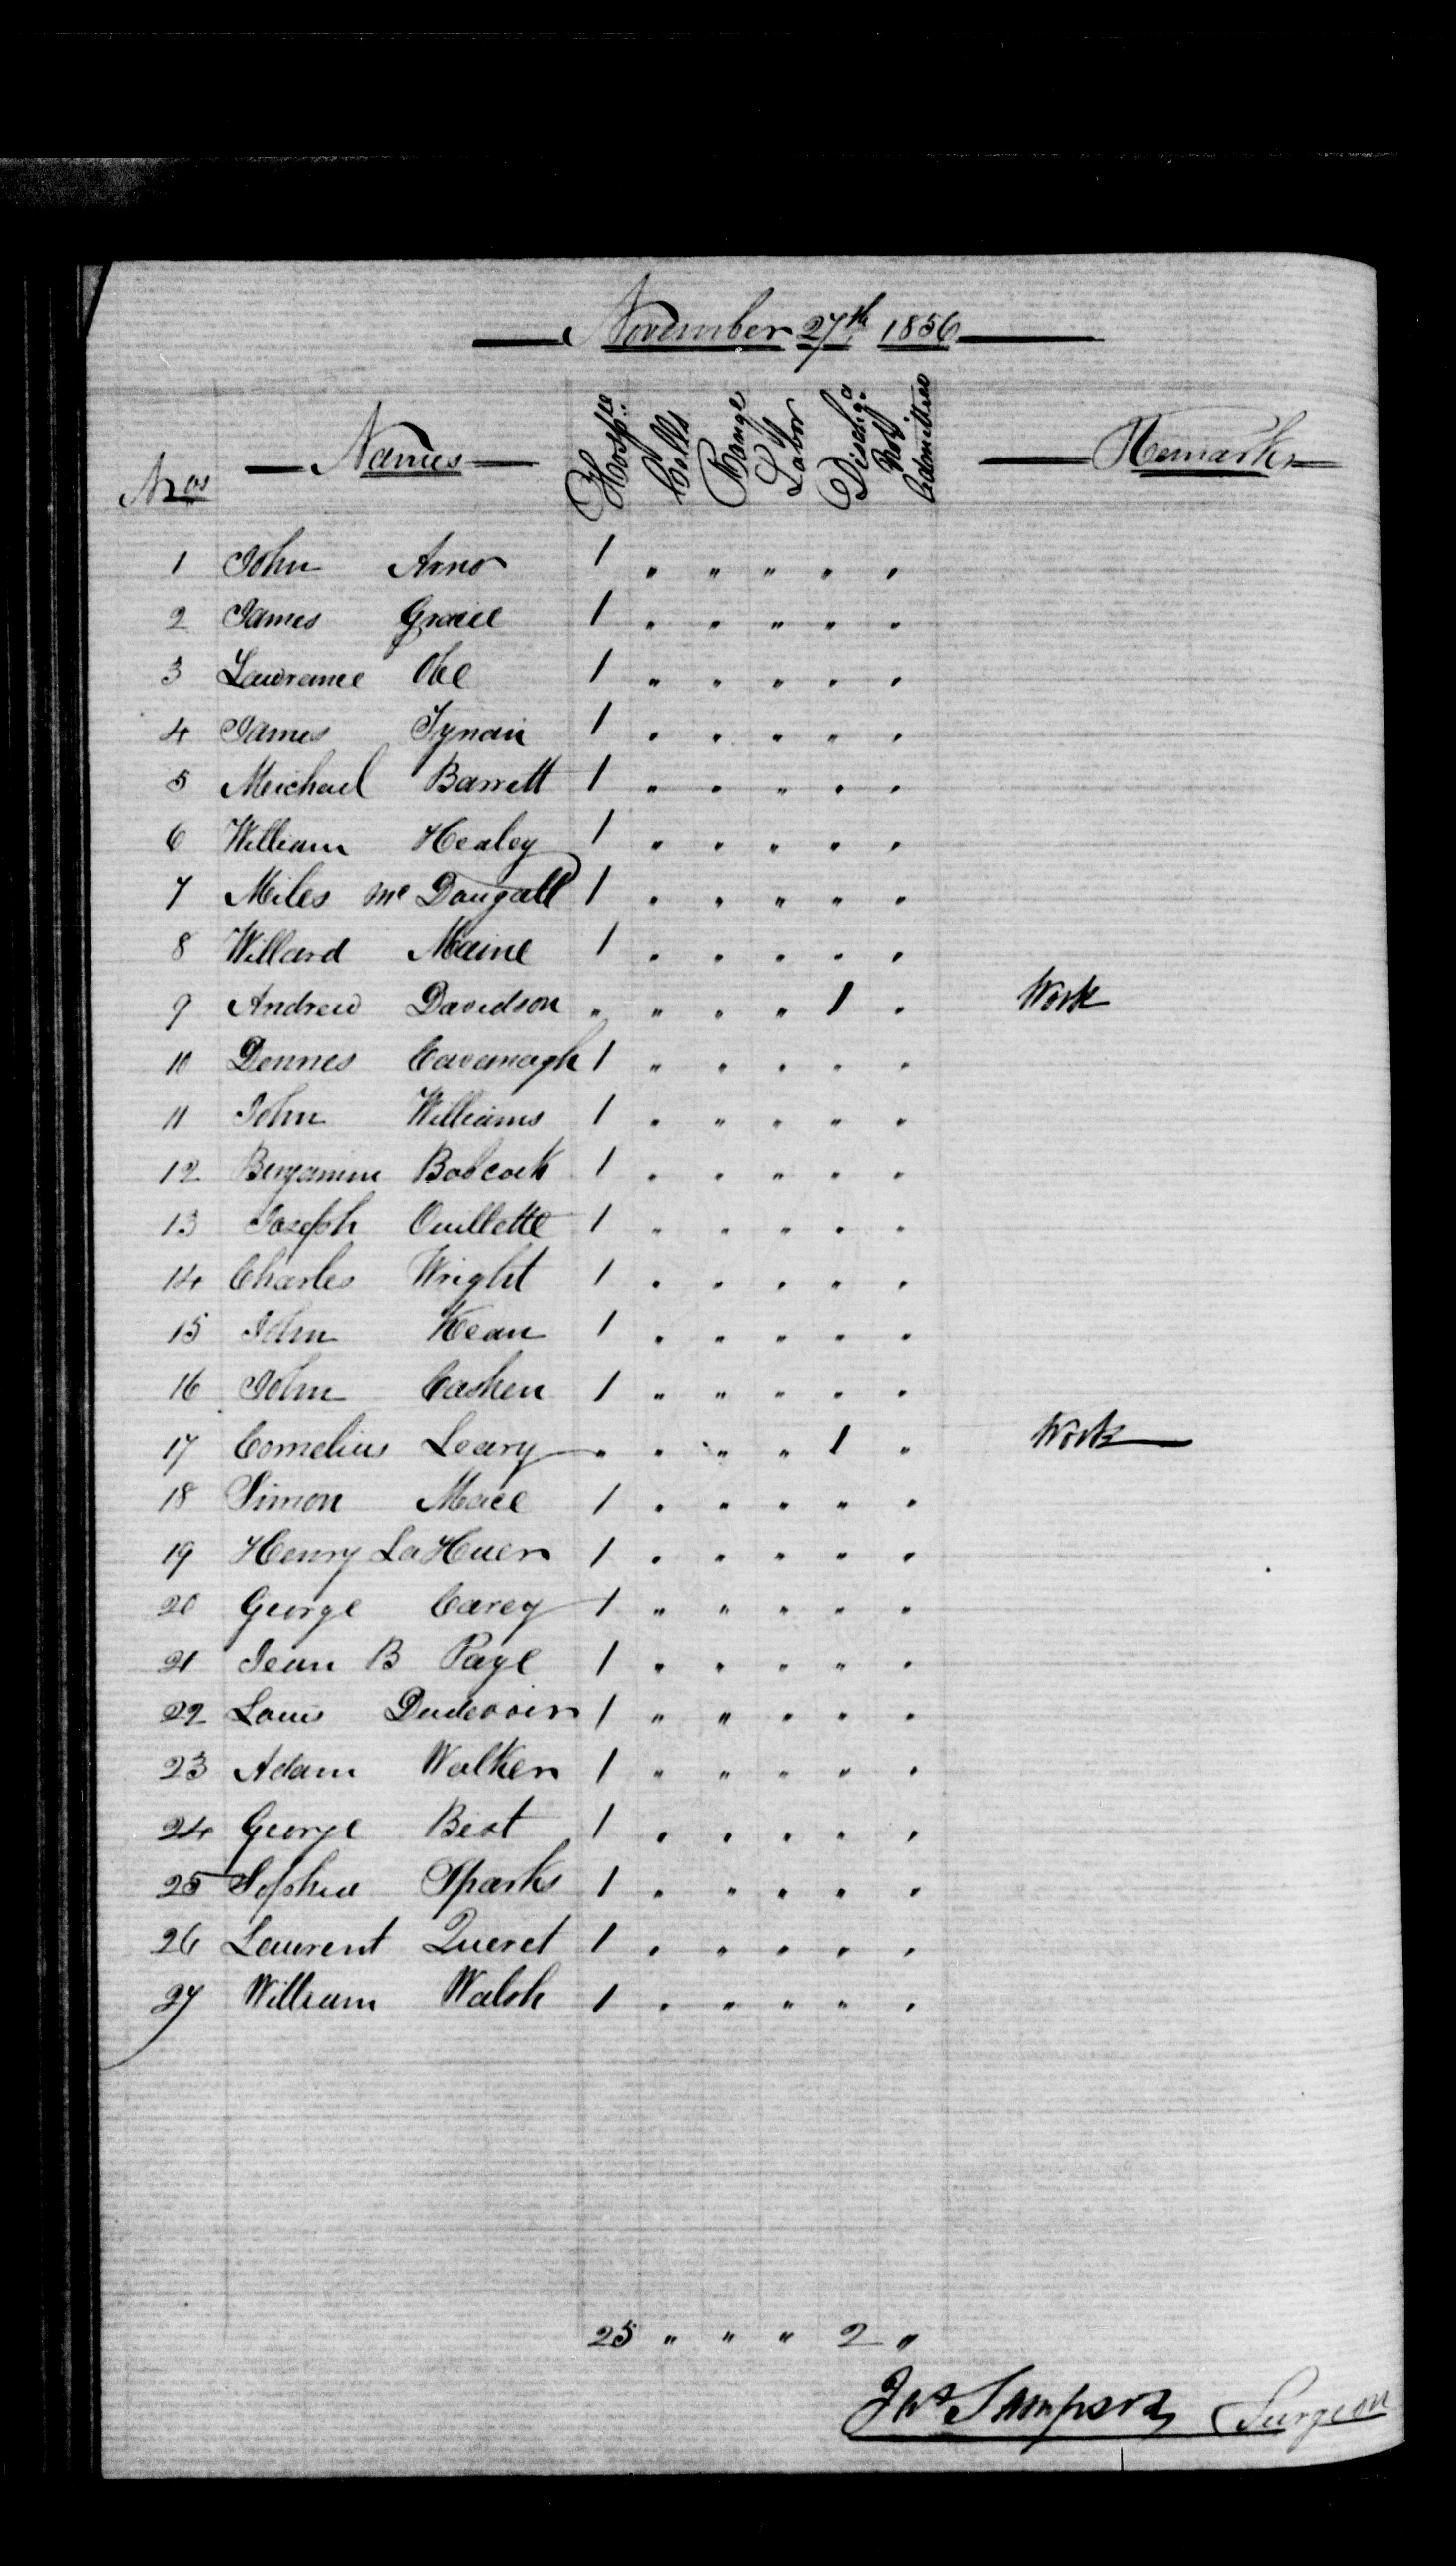 November 27th 1856
Nos Names Hospl. Cells Range Labor Dischgd Not Admitted Remarks
1 John Arno 1 " " " " "
2 James Gracie 1 " " " " "
3 Lawrance Oke 1 " " " " "
4 James Tynan 1 " " " " "
5 Meichael Barrett 1 " " " " "
6 William Healey 1 " " " " "
7 Miles Mc Dougall 1 " " " " "
8 Willard Maine 1 " " " " "
9 Andrew Davidson " " " " 1 " Work
10 Dennes Cavanagh 1 " " " " "
11 John Williams 1 " " " " "
12 Benjamin Babcock 1 " " " " "
13 Joseph Ouillette 1 " " " " "
14 Charles Wright 1 " " " " "
15 John Kean 1 " " " " "
16 John Cashen 1 " " " " "
17 Cornelius Leary " " " " 1 " Work
18 Simon Mace 1 " " " " "
19 Henry La Huer 1 " " " " "
20 George Carey 1 " " " " "
21 Jean B Page 1 " " " " "
22 Louis Dudevoir 1 " " " " "
23 Adam Walker 1 " " " " "
24 George Best 1 " " " " "
25 Sophia Sparks 1 " " " " "
26 Laurent Queret 1 " " " " "
27 William Walsh 1 " " " " "
25 " " " 2 "
Jas Sampson Surgeon